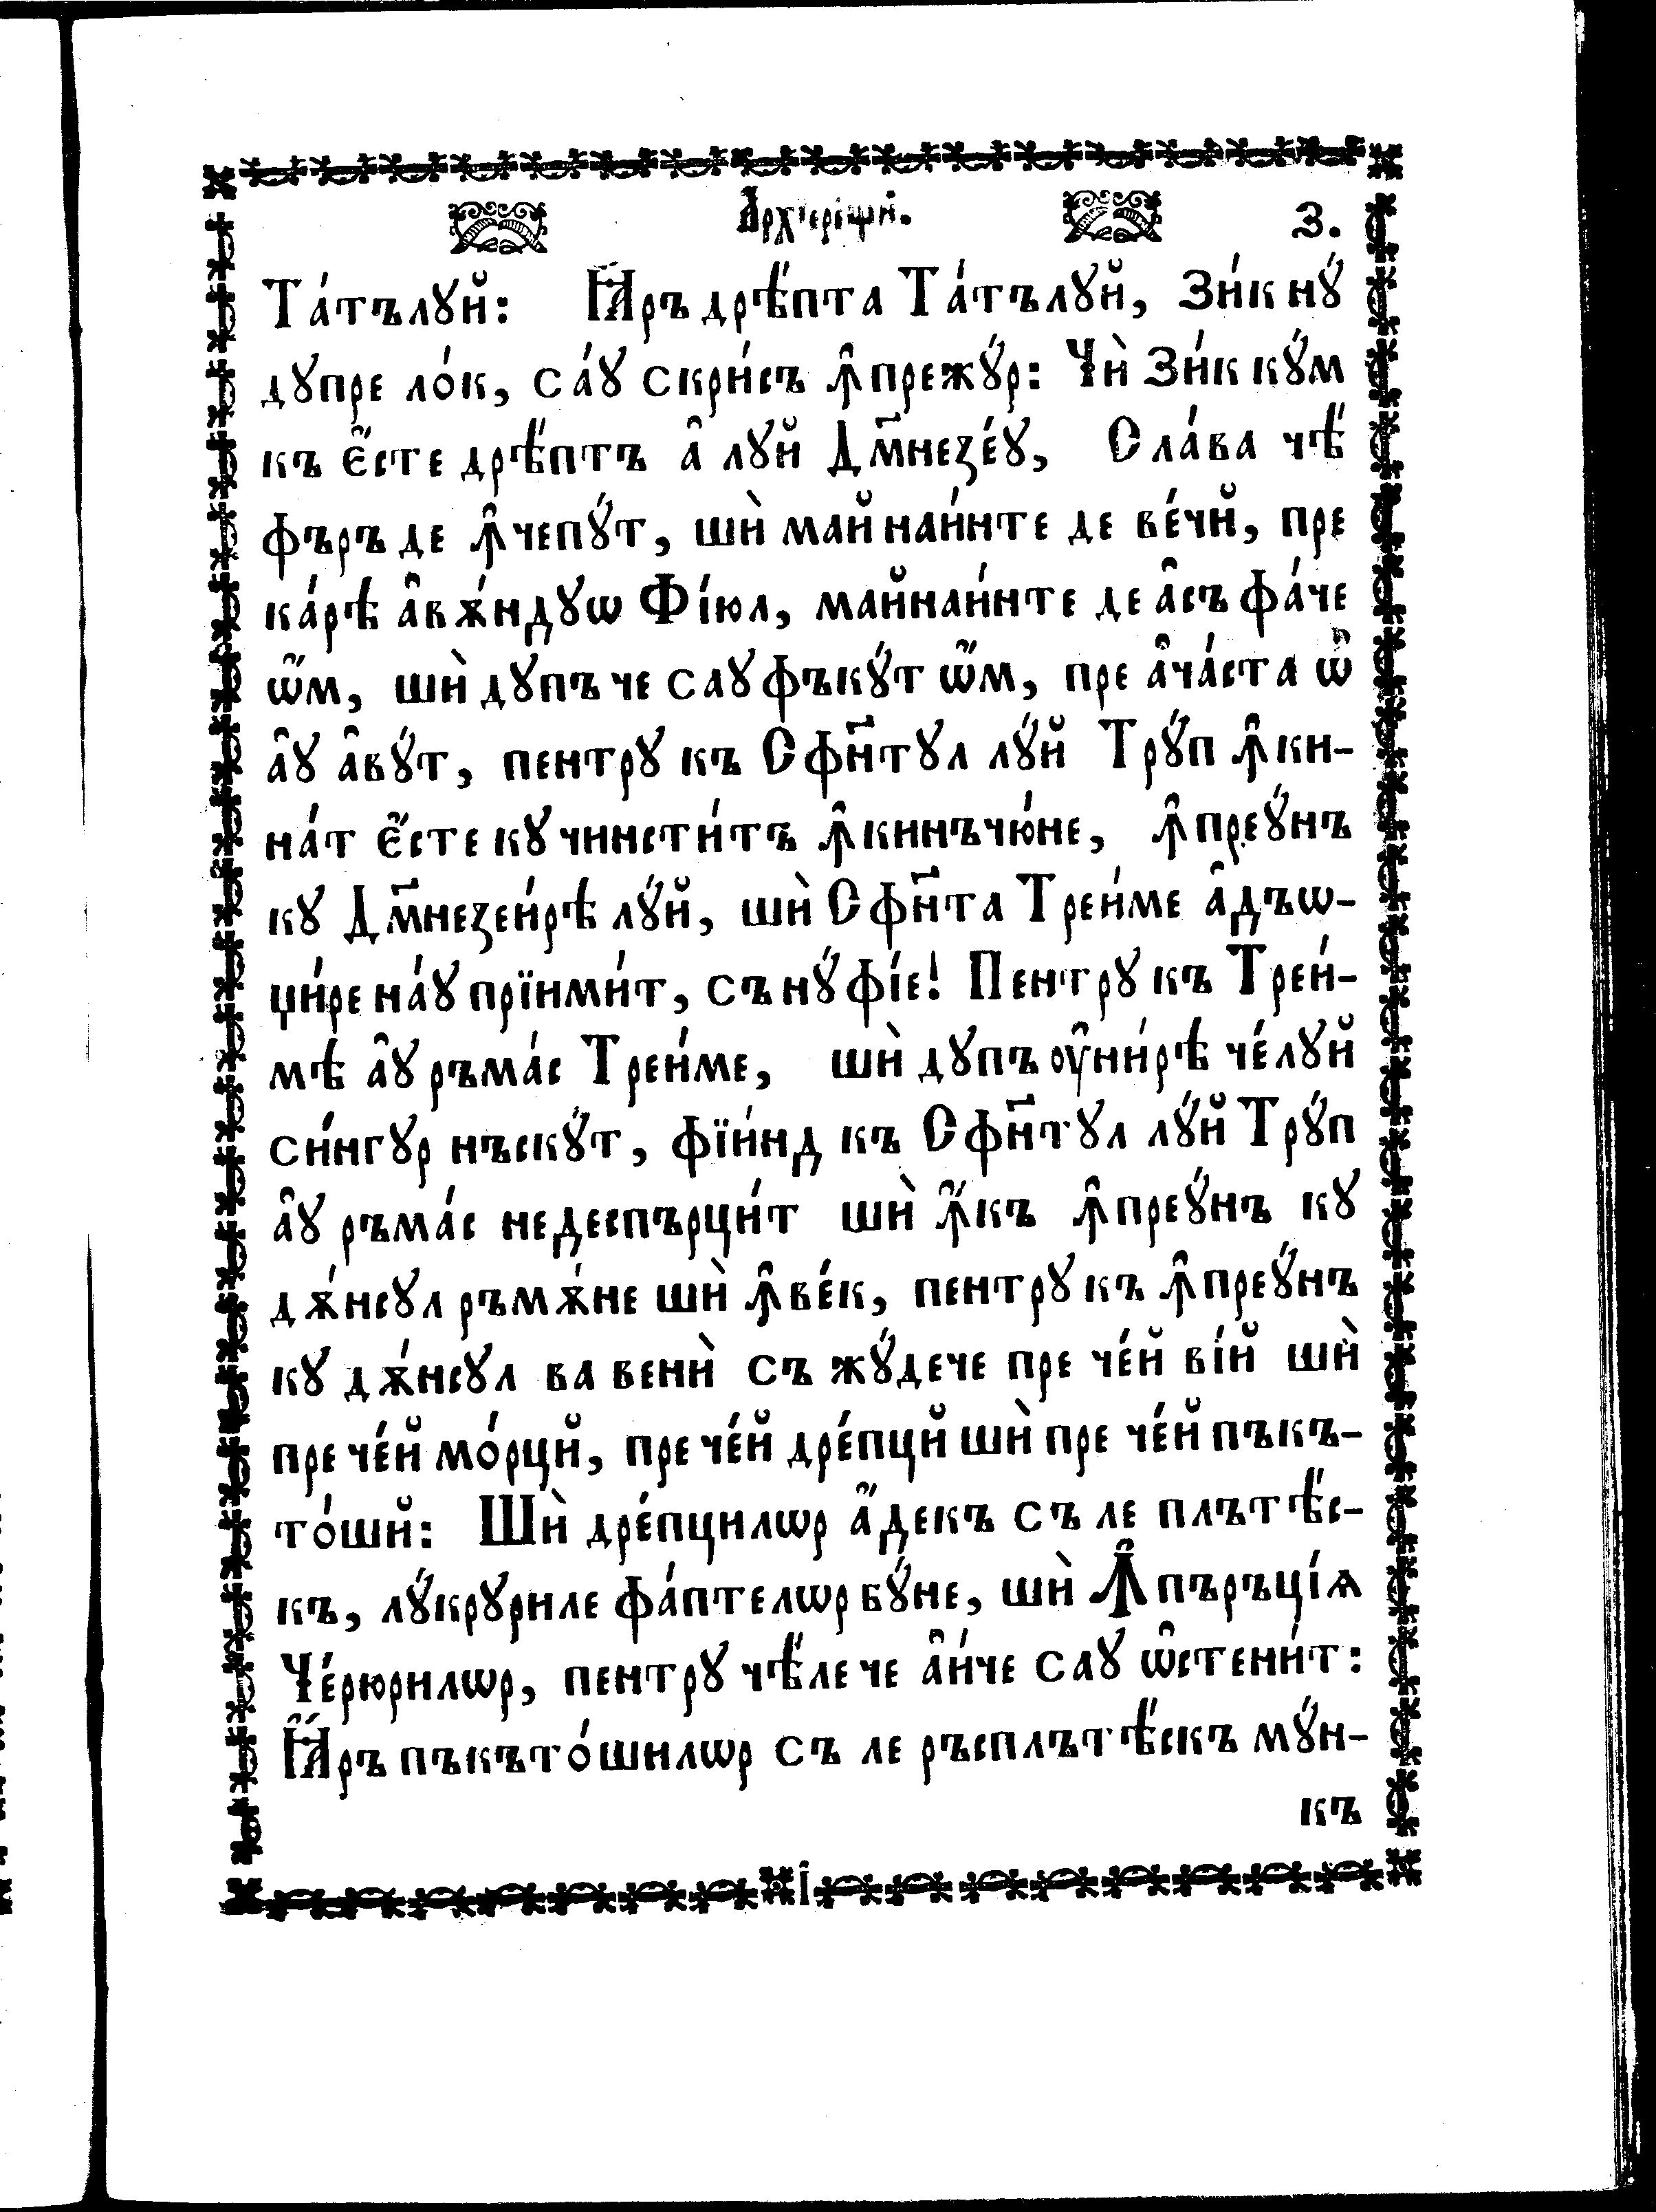 А҆рхіері́щи. З.
Та́тълꙋй: Ꙗ҆́ръ дрѣ́пта Та́тълꙋй, Зи́к нꙋ́
дꙋпре ло́к, са́ꙋ скри́съ ꙟ҆прежꙋ́р: Чѝ Зи́к кꙋ́м
къ є҆́сте дрѣ́птъ а҆ лꙋй Дм҃незе́ꙋ, Сла́ва чѣ́
фъръ де ꙟ҆чепꙋ́т, шѝ май наи́нте де ве́чй, пре
ка́рѣ а҆вѫ́ндꙋѡ Фі́юл, майнаи́нте де а҆съ фа́че
ѡ҆́м, шѝ дꙋпъ че саꙋ фъкꙋ́т ѡ҆́м, пре а҆ча́ста ѡ҆
а҆ꙋ а҆вꙋ́т, пентрꙋ къ Сфн҃тꙋл лꙋ́й Трꙋ́п ꙟ҆ки-
на́т є҆́сте кꙋ чинсти́тъ ꙟ҆кинъчю́не, ꙟ҆преꙋ́нъ
кꙋ Дм҃незеи́рѣ лꙋ́й, шѝ Сфн҃та Треи́ме а҆дъѡ-
џи́ре на́ꙋ прїими́т, съ нꙋ́ фі́е! Пентрꙋ къ Треи́-
мѣ а҆ꙋ ръма́с Треи́ме, шѝ дꙋпъ ᲂу҆ни́рѣ че́лꙋй
си́нгꙋр нъскꙋ́т, фїи́нд къ Сфн҃тꙋл лꙋ́й Трꙋ́п
а҆ꙋ ръма́с недеспърци́т шѝ ꙟ҆́къ ꙟ҆преꙋ́нъ кꙋ
дѫ́нсꙋл ръмѫ́не шѝ ꙟ҆ве́к, пентрꙋ къ ꙟ҆преꙋ́нъ
кꙋ дѫ́нсꙋл ва венѝ съ жꙋ́дече пре че́й ві́й шѝ
пре че́й мо́рцй, пре че́й дре́пцй шѝ пре че́й пъкъ-
то́шй: Шѝ дре́пцилѡр а҆́декъ съ ле плътѣ́с-
къ, лꙋ́крꙋриле фа́птелѡр бꙋ́не, шѝ Ꙟ҆пъръці́ѧ
Че́рюрилѡр, пентрꙋ чѣ́ле че а҆и́че саꙋ ѡ҆стени́т:
Ꙗ҆́ръ пъкъто́шилѡр съ ле ръсплътѣ́скъ мꙋ́н-
къ
І҆